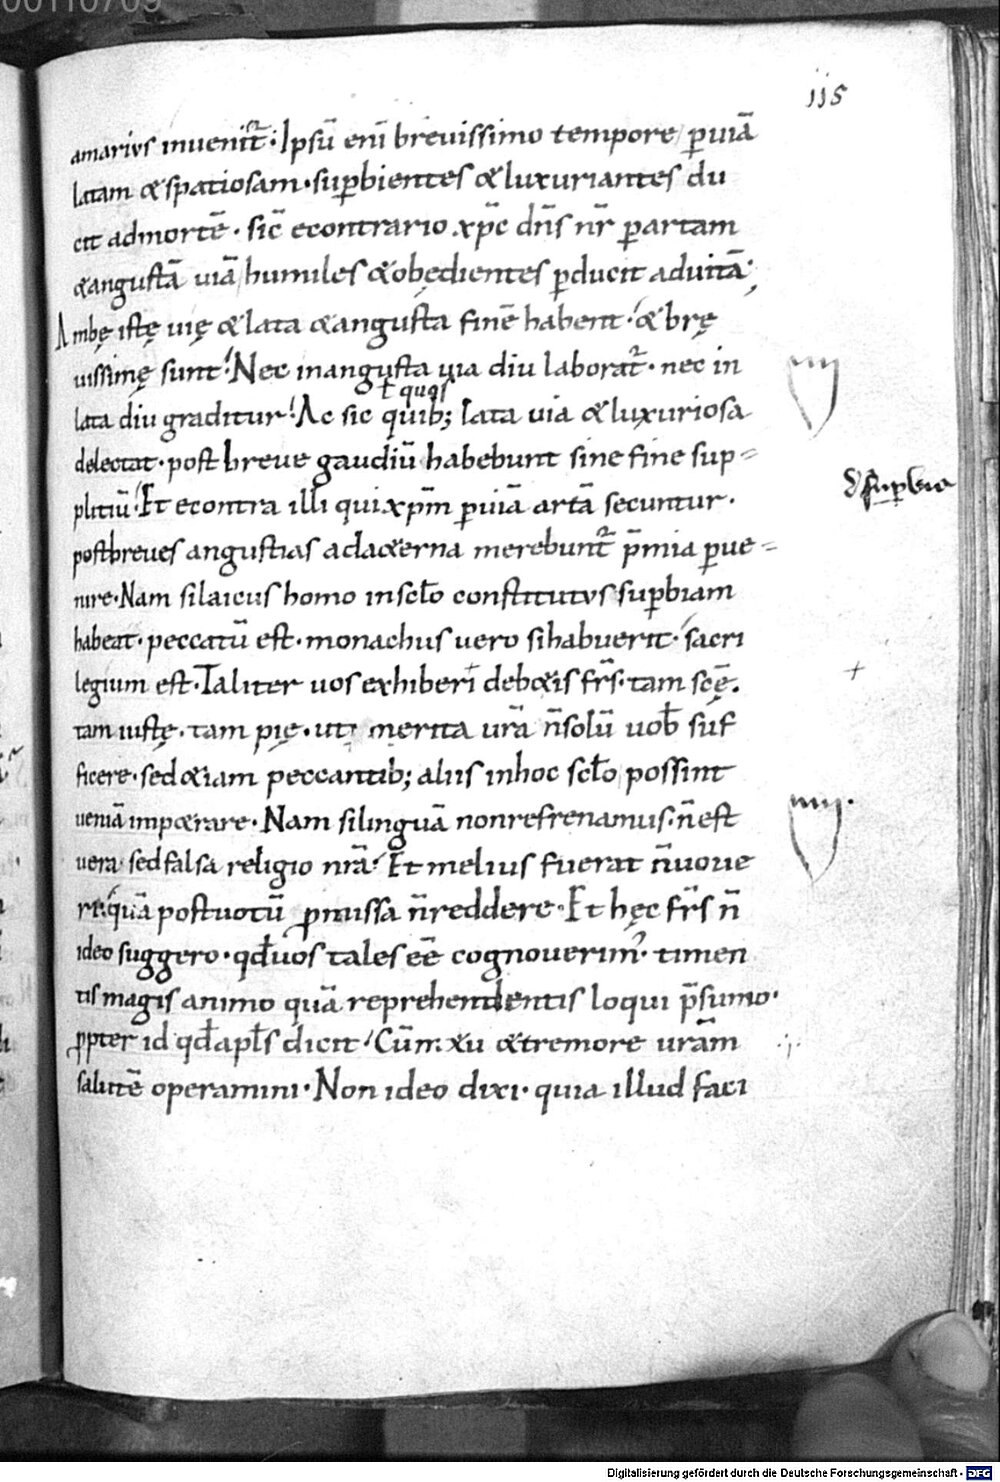 115
amarius inuenit᷑· Ipsū enī breuissimo tempore ꝑuiā
latam & spatiosam · suꝑbientes & luxuriantes du
cit admortē · sic̄ econtrario xp̄c dn̄s nr̄ ꝑartam
& angustā uiā humiles & obędientes ꝑducit aduitā;
Ambę istę uię & lata & angusta finē habent · & bre
uissimę sunt · Nec inangusta uia diu laborat᷑ · nec in
ł quos
lata diu graditur · Ac sic quib; lata uia & luxuriosa
delectat · post breue gaudiū habebunt sine fine sup-
plitiū · Et econtra illi qui xp̄m ꝑuiā artā secuntur ·
postbreues angustias ad a&erna merebunt᷑ p̄mia ꝑue-
nire · Nam silaicus homo inscło constitutus suꝑbiam
habeat · peccatū est · monachus uero sihabuerit · sacri
legium est · Taliter uos exhiberi deb&is fr̄s · tam scę̄ ·
tam iustę · tam pię · uti merita ur̄a n̄solū uob̄ suf
ficere · sed &iam peccantib; aliis inhoc scło possint
ueniā imp&rare · Nam silinguā nonrefrenamus · n̄est
uera · sed falsa religio nr̄a · Et melius fuerat n̄uoue
re · quā postuotū ꝓmissa n̄reddere · Et hęc fr̄s n̄
ideo suggero · qđ uos tales eē cognouerim᾽ · timen
tis magis animo quā reprehendentis loqui p̄sumo ·
ꝓpter id qđ apłs dicit · Cūm&u &tremore ur̄am
salutē operamini · Non ideo dixi · quia illud faci
suꝑbia
Digitalisierung gefördert durch die Deutsche Forschungsgemeinschaft - DFG